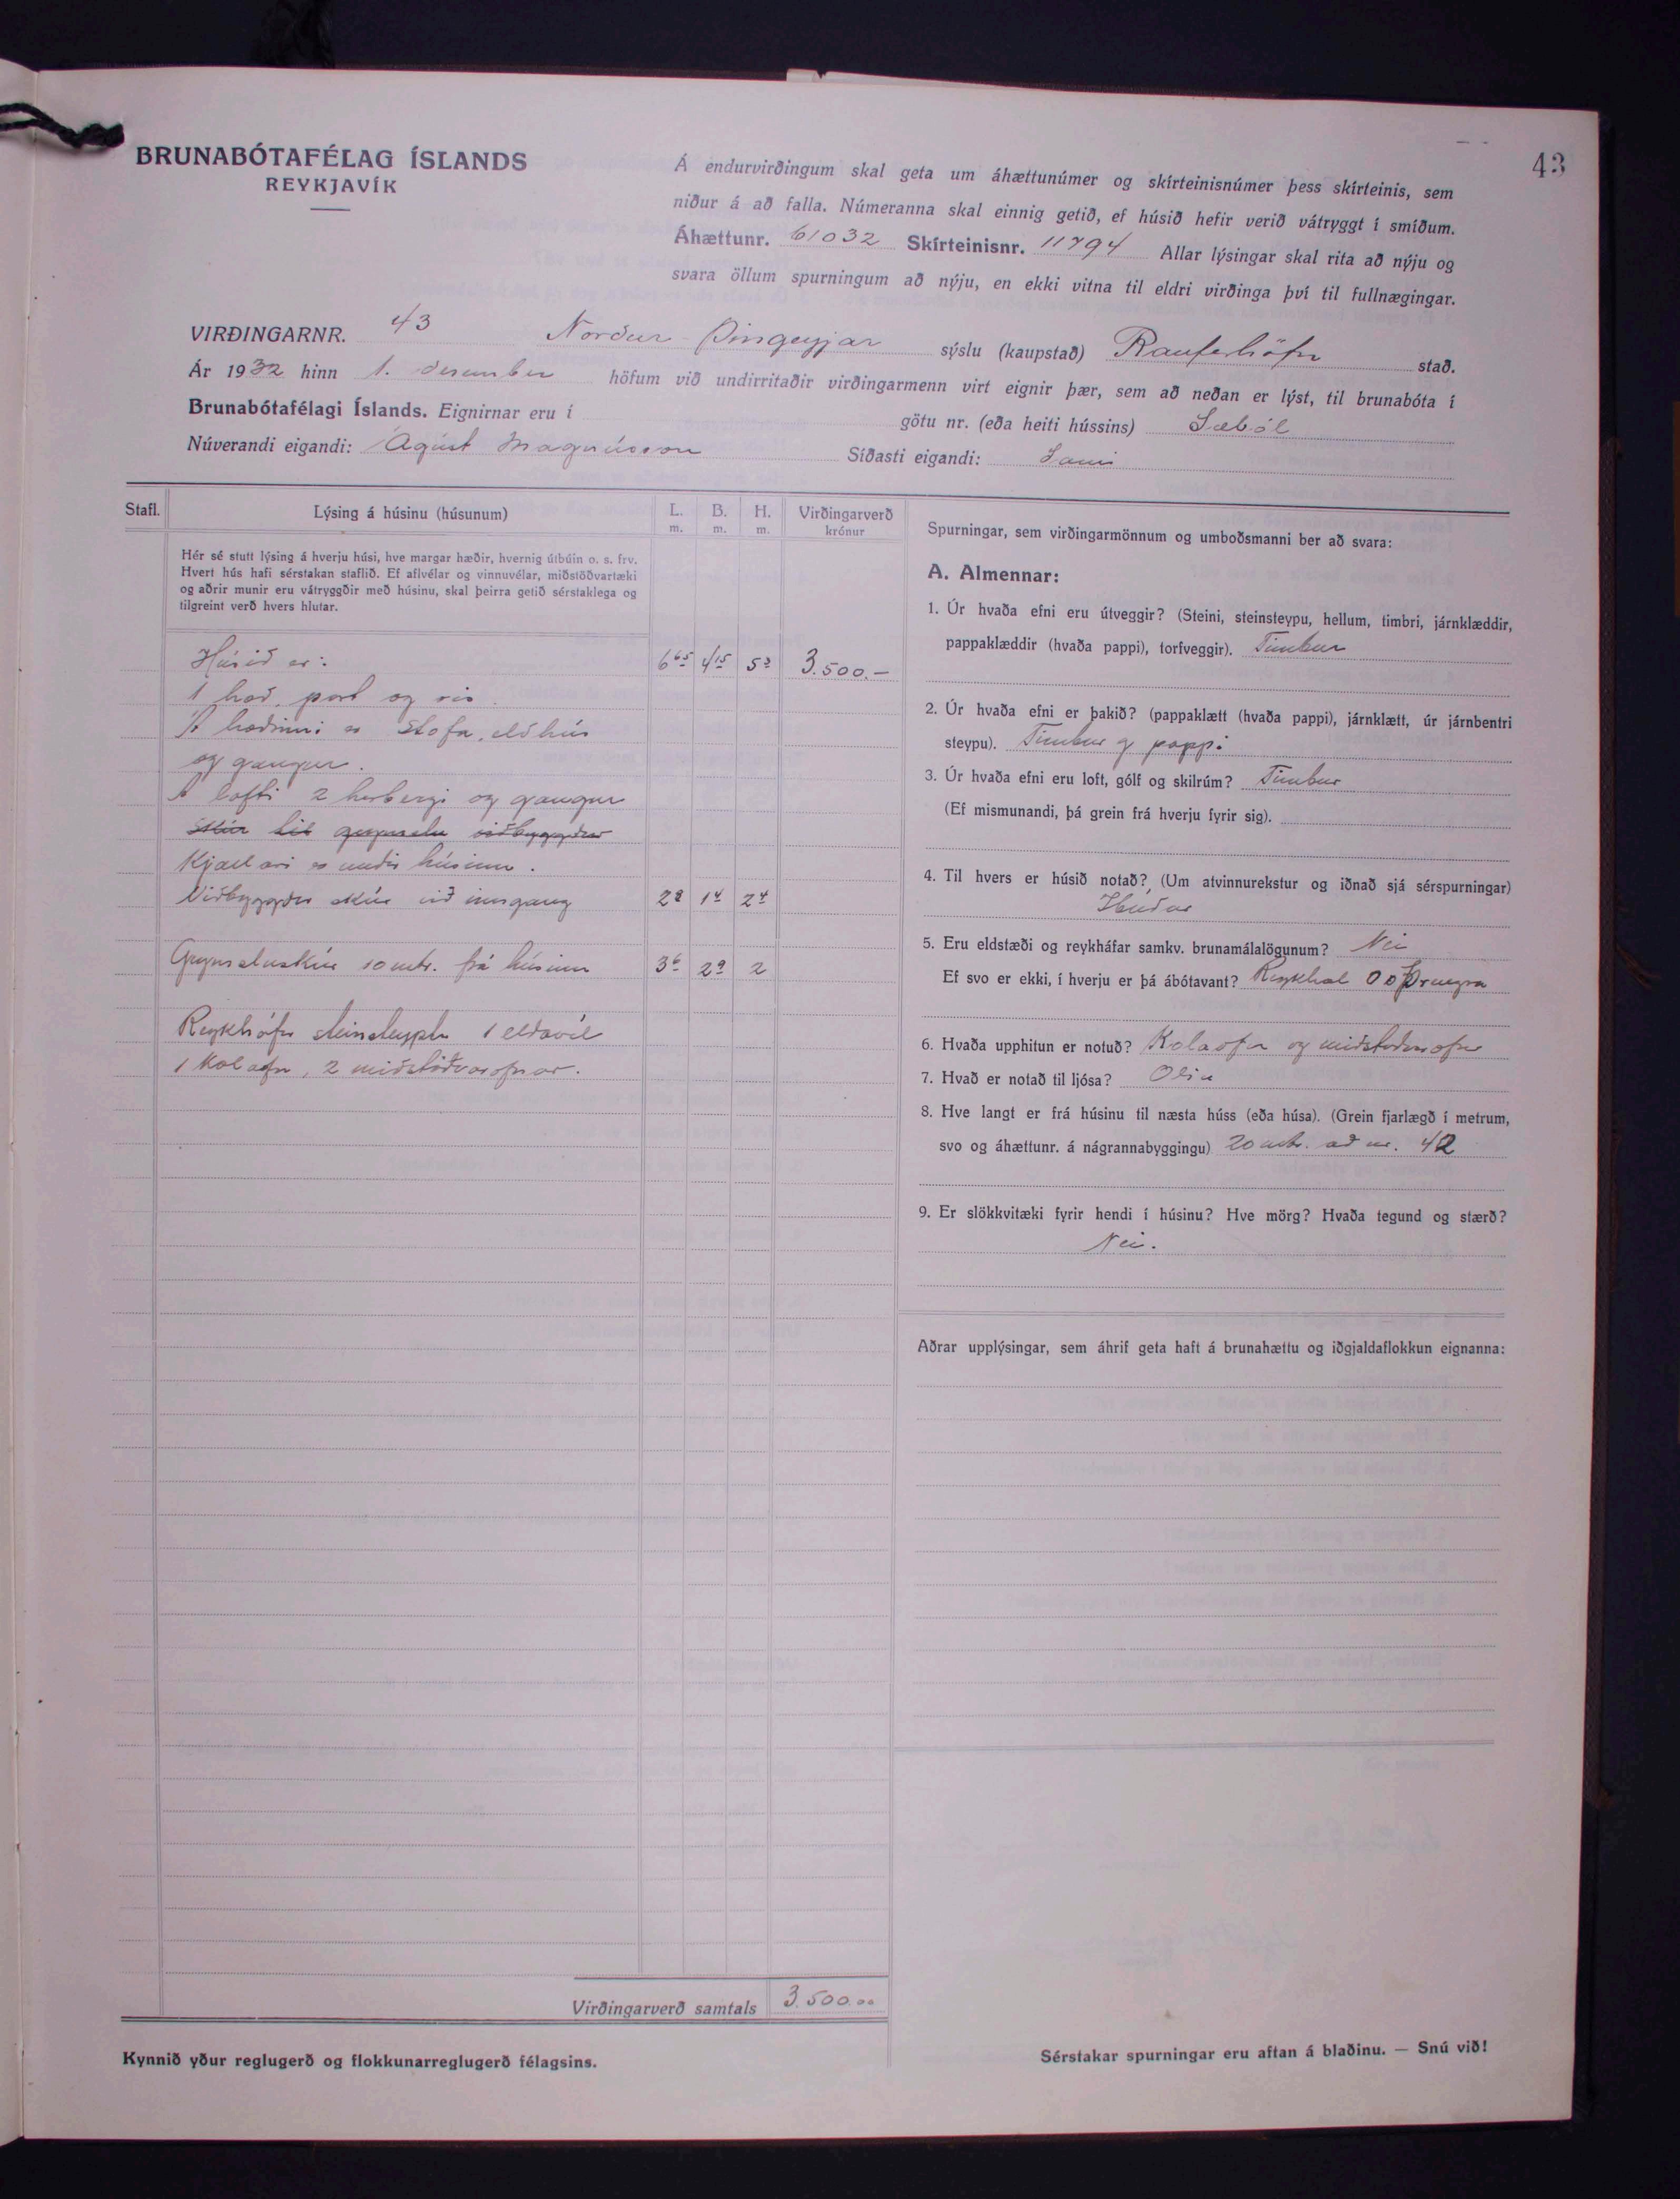 43
BRUNABÓTAFÉLAG ÍSLANDS
REYKJAVÍK
Á endurvirðingum skal geta um áhættunúmer og skírteinisnúmer þess skírteinis, sem
niður á að falla. Númeranna skal einnig getið, ef húsið hefir verið vátryggt í smíðum.
Áhættunr. 61032 Skírteinisnr. 11794 Allar lýsingar skal rita að nýju og
svara öllum spurningum að nýju, en ekki vitna til eldri virðinga því til fullnægingar.
VIRÐINGARNR. 43 Norður-Þingeyjar sýslu (kaupstað) Raufarhöfn stað.
Ár 1932 hinn 1. desember höfum við undirritaðir virðingarmenn virt eignir þær, sem að neðan er lýst, til brunabóta í
Brunabótafélagi Íslands. Eignirnar eru í götu nr. (eða heiti hússins) Sæból
Núverandi eigandi: Ágúst Magnússon Síðasti eigandi: Sami
Stafl. Lýsing á húsinu (húsunum) L. m. B. m. H. m. Virðingarverð krónur
Hér sé stutt lýsing á hverju húsi, hve margar hæðir, hvernig útbúin o. s. frv.
Hvert hús hafi sérstakan staflið. Ef aflvélar og vinnuvélar, miðstöðvartæki
og aðrir munir eru vátryggðir með húsinu, skal þeirra getið sérstaklega og
tilgreint verð hvers hlutar.
Húsið er: 6 65 4 15 5 3 3.500.-
1 hæð, port og ris.
Á hæðinni er Stofa, eldhús
og gangur.
Á lofti 2 herbergi og gangur
Skúr til geymslu viðbyggður
Kjallari er undir húsinu.
Viðbyggður skúr við inngang 2 2 1 4 2 4
Geymsluskúr 10 mtr. frá húsinu 3 6 2 9 2
Reykháfur steinsteyptur 1 eldavél
1 Kolaofn, 2 miðstöðvarofnar.
Virðingarverð samtals 3.500.00
Kynnið yður reglugerð og flokkunarreglugerð félagsins.
Spurningar, sem virðingarmönnum og umboðsmanni ber að svara:
A. Almennar:
1. Úr hvaða efni eru útveggir? (Steini, steinsteypu, hellum, timbri, járnklæddir,
pappaklæddir (hvaða pappi), torfveggir). Timbur
2. Úr hvaða efni er þakið? (pappaklætt (hvaða pappi), járnklætt, úr járnbentri
steypu). Timbur og pappi
3. Úr hvaða efni eru loft, gólf og skilrúm? Timbur
(Ef mismunandi, þá grein frá hverju fyrir sig).
4. Til hvers er húsið notað? (Um atvinnurekstur og iðnað sjá sérspurningar)
Íbúðar
5. Eru eldstæði og reykháfar samkv. brunamálalögunum? Nei
Ef svo er ekki, í hverju er þá ábótavant? Reykháf
6. Hvaða upphitun er notuð? Kolaofn og miðstöðvarofnar
7. Hvað er notað til ljósa? Olía
8. Hve langt er frá húsinu til næsta húss (eða húsa). (Grein fjarlægð í metrum,
svo og áhættunr. á nágrannabyggingu) 20 mtr. að nr. 42
9. Er slökkvitæki fyrir hendi í húsinu? Hve mörg? Hvaða tegund og stærð?
Nei.
Aðrar upplýsingar, sem áhrif geta haft á brunahættu og iðgjaldaflokkun eignanna:
Sérstakar spurningar eru aftan á blaðinu. — Snú við!